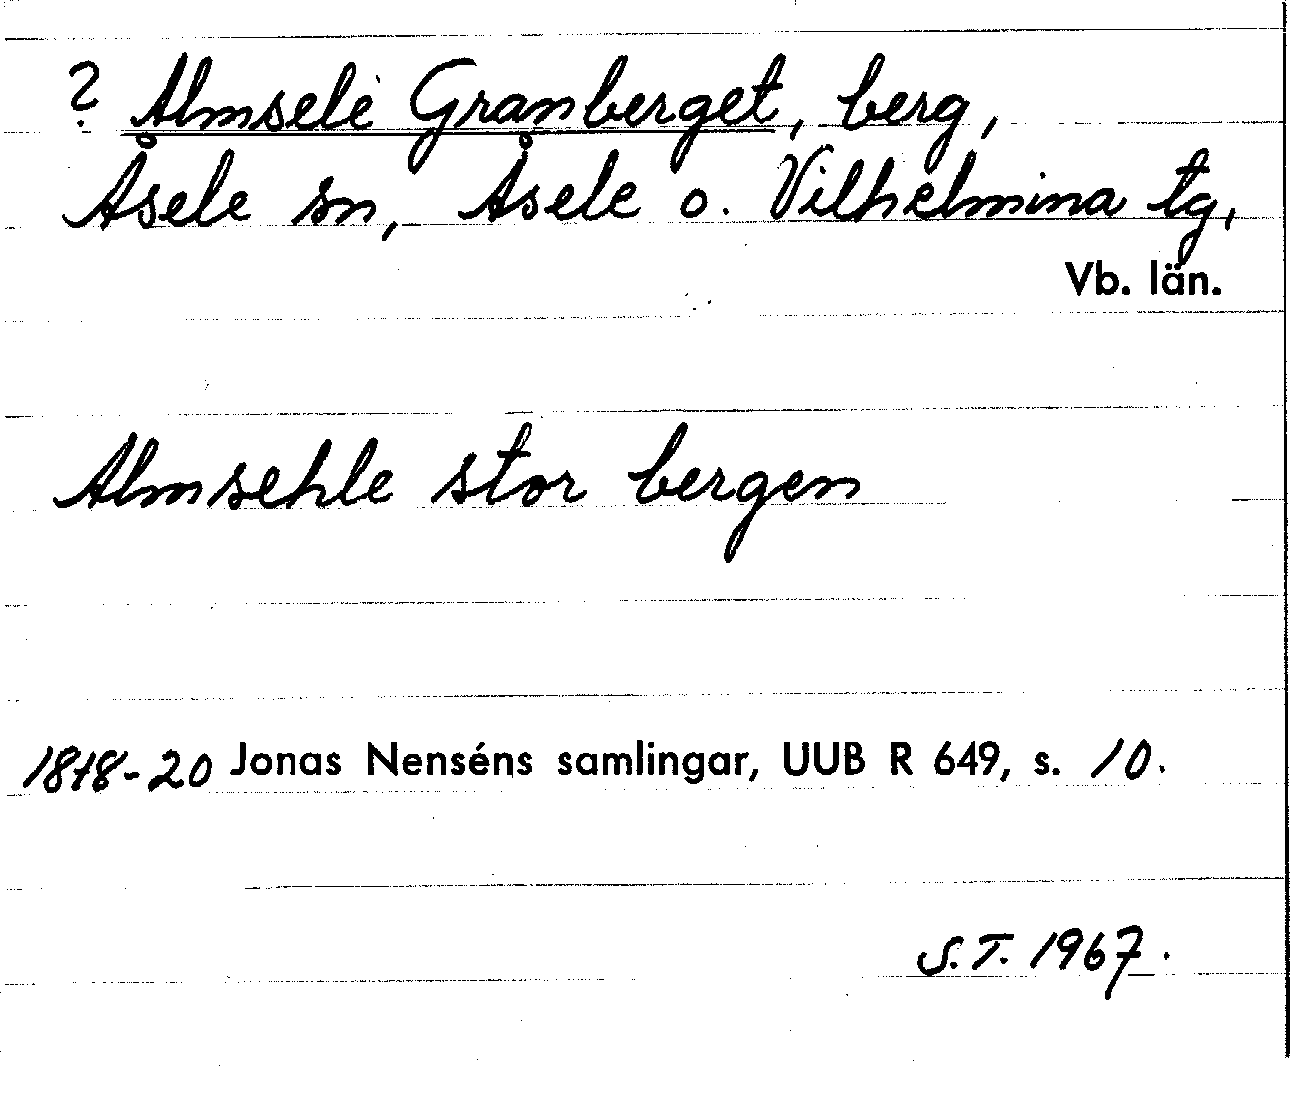 ? Almsele Granberget, berg,
Åsele sn, Åsele o. Vilhelmina tg,
Vb. län.
Almsehle stor bergen
1818-20 Jonas Nenséns samlingar, UUB R 649, s. 10.
S.T. 1967.